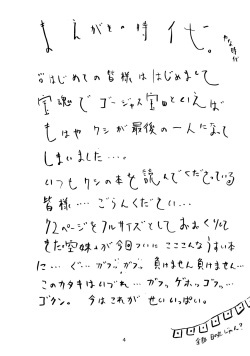 まえがきの時代。
はじめての皆様ははじめまして
宝魂でゴージャス宝田といえば
もはやワシが最後の一人になって
しまいました…。
いつもワシの本を読んでくださっている
皆様…ごらんください…
72ページをフルサイズとしておおくりして
きた宝妹が今回ついにこここんなうすい本
に…ぐ…ガフッガフッ負けません負けません…
このカタキはいづれ…ガフッ、ゲホッゴフッ…
ゴクン。今はこれがせいいっぱい。
4